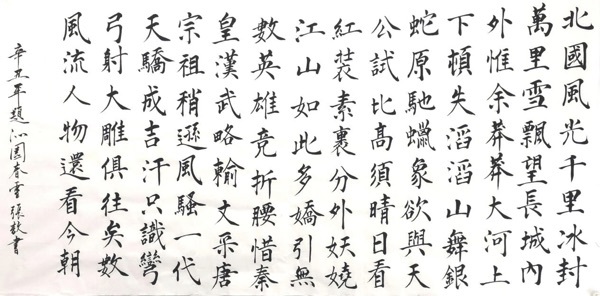 北國風光千里冰封
萬里雪飄望長城內
外惟余莽莽大河上
下頓失滔滔山舞銀
蛇原馳蠟象欲與天
公試比高須晴日看
紅裝素裹分外妖嬈
江山如此多嬌引無
數英雄竞折腰惜秦
皇漢武略輸文采唐
宗祖稍遜風騷一代
天驕成吉汗只識彎
弓射大雕俱往矣數
風流人物還看今朝
辛丑年題沁園春雪張書